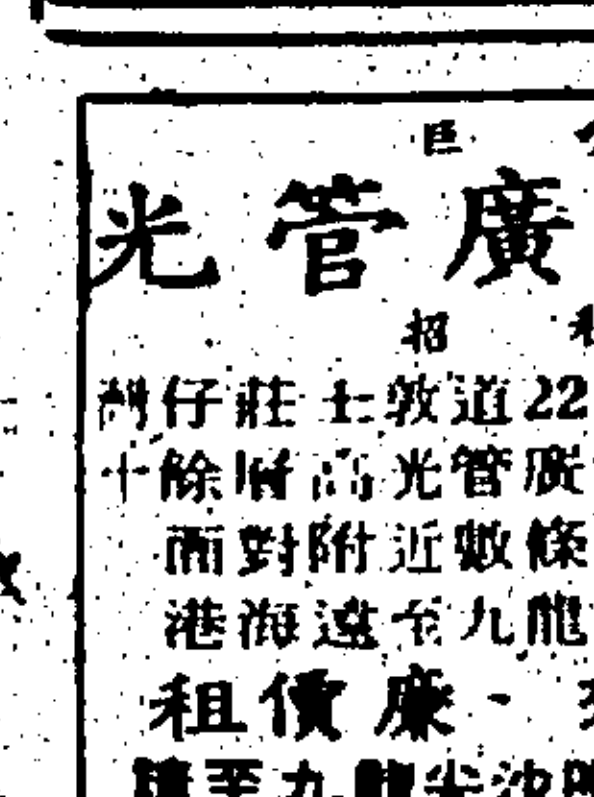 巨
光管廣
招
灣仔莊士敦道22
十餘層高光管廣
面對附近數條
港海遠至九龍
租價廉、
至九龍尖沙